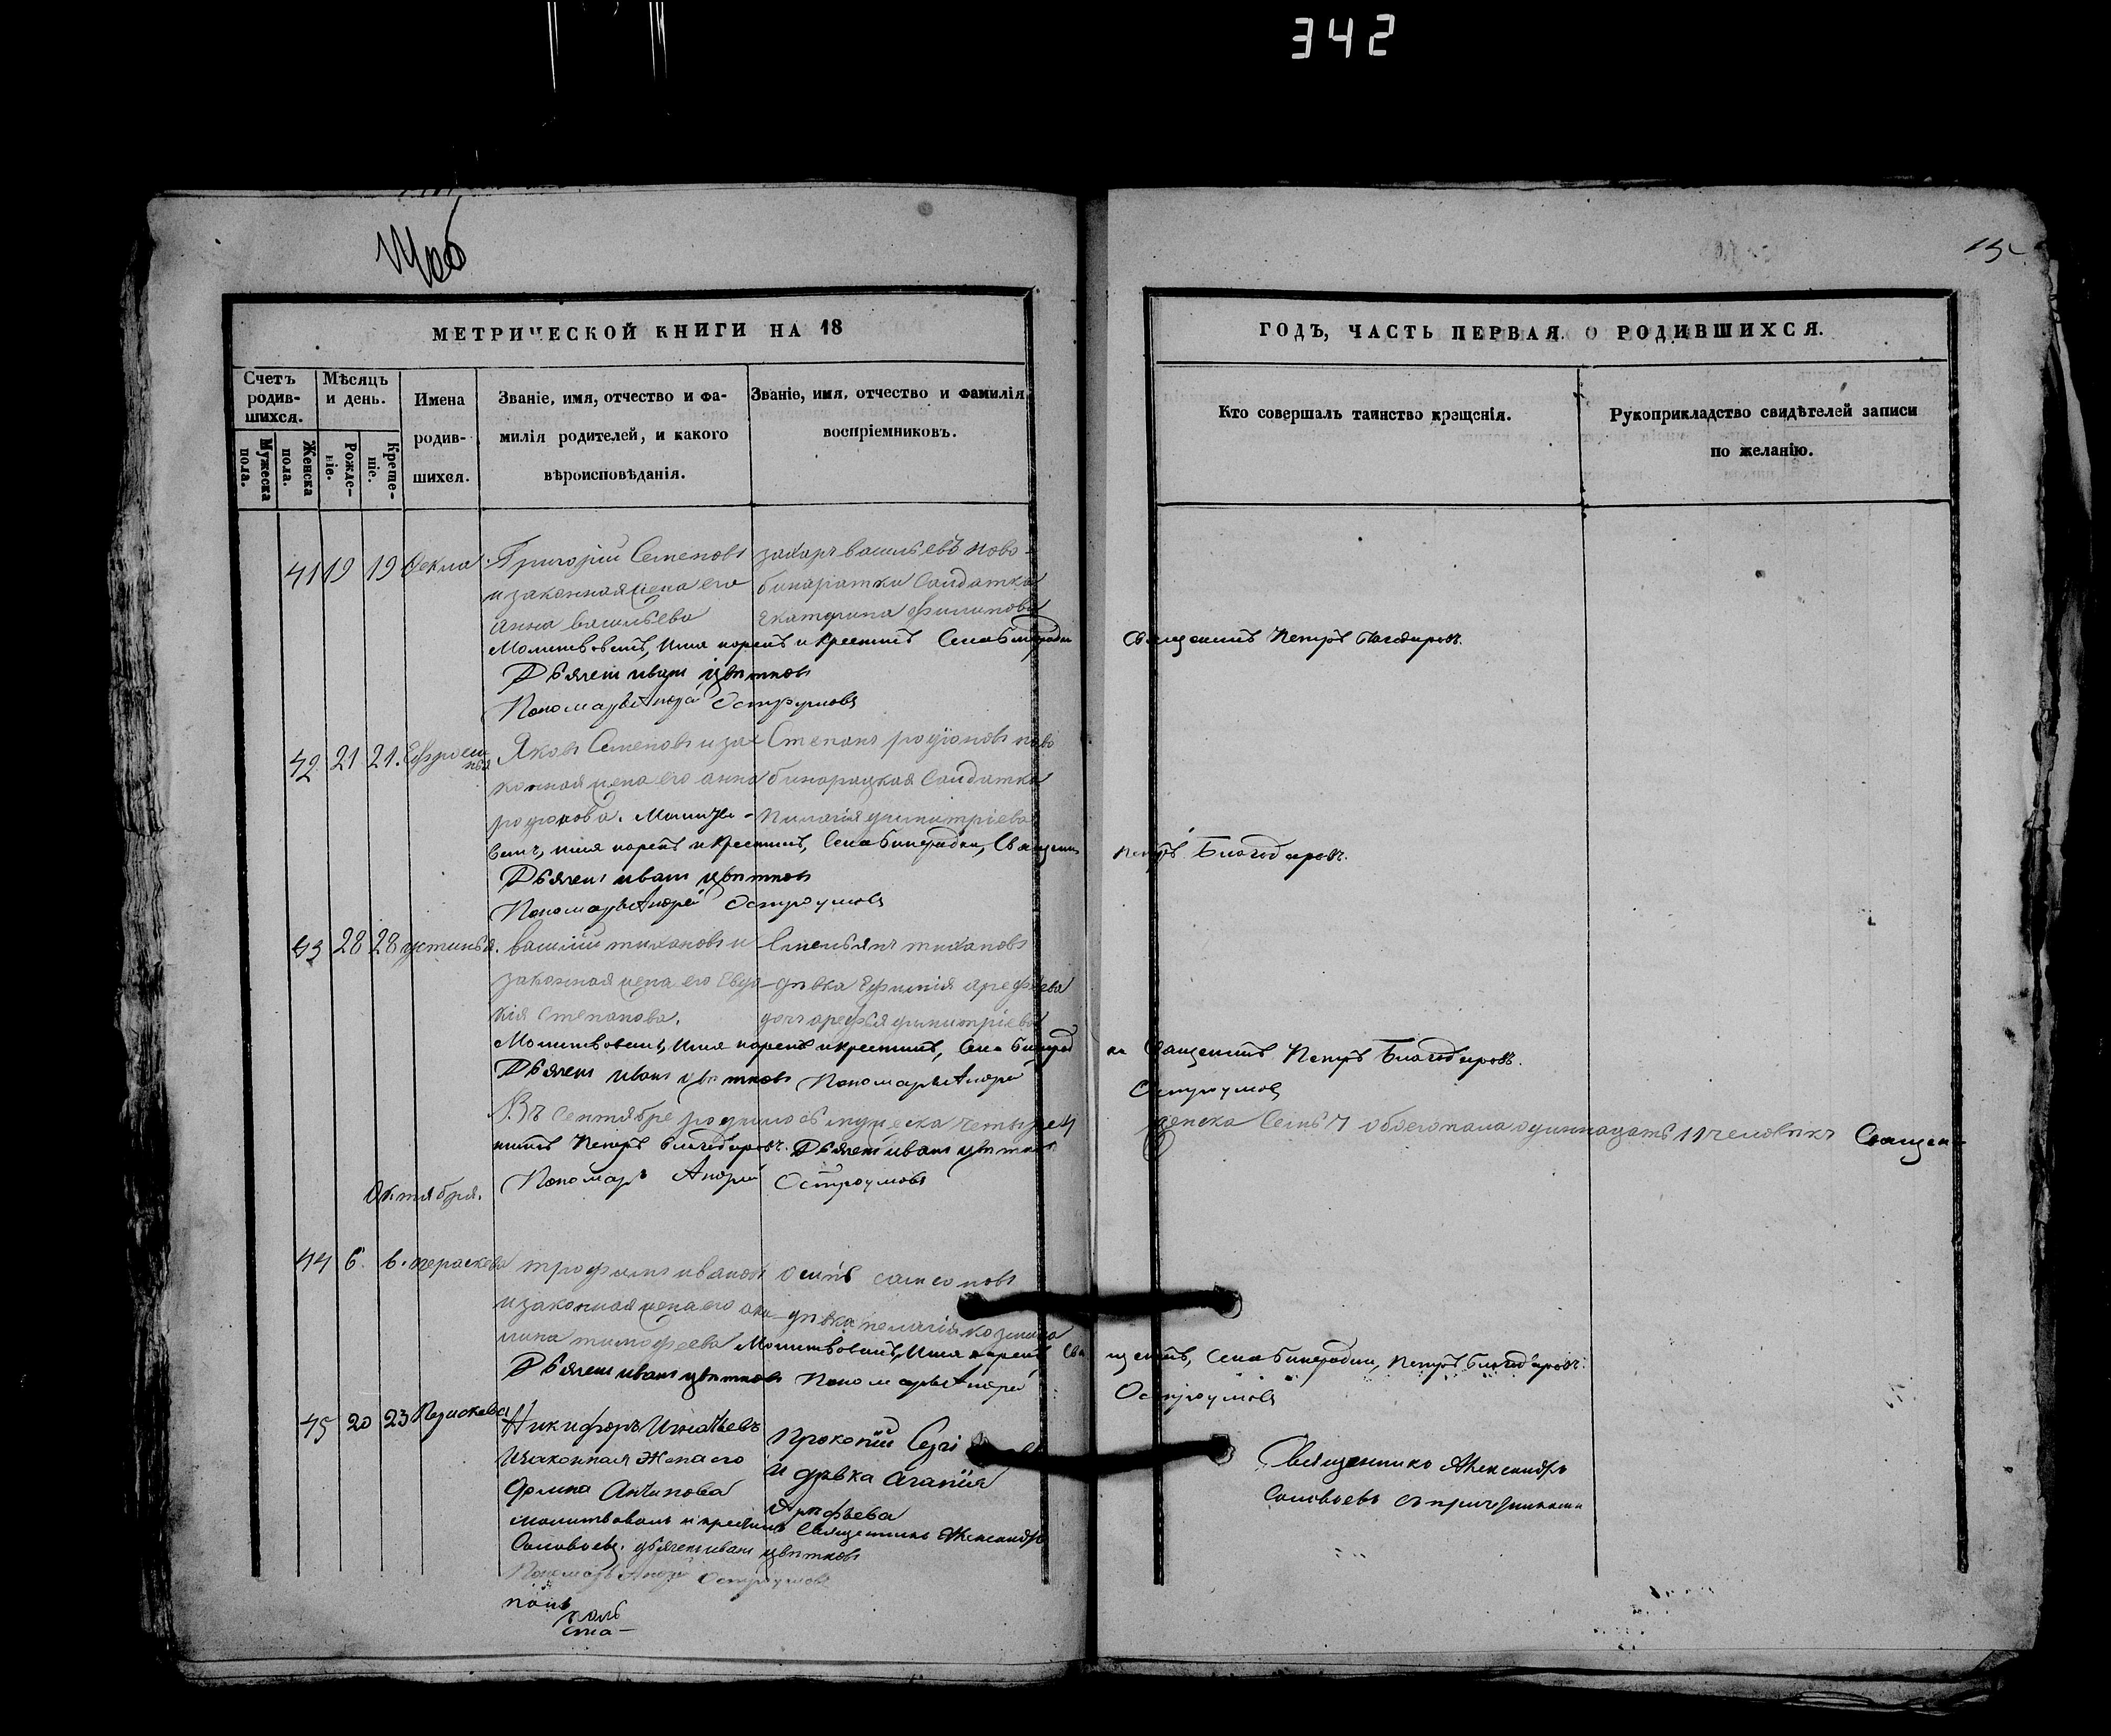 342
МЕТРИЧЕСКОЙ КНИГИ НА 18
ГОДЪ, ЧАСТЬ ПЕРВАЯ. О РОДИВШИХСЯ.
Счетъ родив-шихся.
Мѣсяцъ и день.
Мужеска пола.
Женска пола.
Рожде-ніе.
Креще-ніе.
Имена
родив-
шихся.
Званіе, имя, отчество и фа-
милія родителей, и какого
вѣроисповѣданія.
Званіе, имя, отчество и фамилія
воспріемниковъ.
Кто совершалъ таинство крещенія.
Рукоприкладство свидѣтелей записи
по желанію.
41 19 19 Фекла Григорій Семеновъ захаръ васильевъ ново-
и законная жена его бинаратки Солдатка
анна васильева Екатерина филипова
Молитвовалъ, имя нарекъ и крестилъ Села
Священникъ Петръ Благодаровъ.
Дьячекъ иванъ цвѣтковъ
Пономарь Андрей Остроумовъ
42 21 21. Ефроси-нья Яковъ Семеновъ и за- Степанъ родіоновъ ново
конная жена его анна бинарацкая Солдатка
родіонова. Молитво- пилагія димитріева
валъ, имя нарекъ и крестилъ, Села Бинарадки, Священникъ Петръ Благодаровъ.
Дьячекъ иванъ цвѣтковъ
Пономарь Андрей Остроумовъ
43 28 28 устинья. василій тихановъ и Емельянъ тихановъ
законная жена его Евдо- дѣвка Ефимія арефьева
кія Степанова. дочь арефья димитріева
Молитвовалъ, имя нарекъ и крестилъ, Села Бинарадки Священникъ Петръ Благодаровъ.
Дьячекъ иванъ цвѣтковъ Пономарь Андрей Остроумовъ
Въ Сентябре родилось мужеска четыре 4 женска Семь 7 обоего пола одиннадцать 11 человѣкъ Священ-
никъ Петръ Благодаровъ. Дьячекъ иванъ цвѣтковъ
Пономарь Андрей Остроумовъ
Октября.
44 6. 6. пераскева трофимъ ивановъ осипъ самсоновъ
и законная жена его аку- дѣвка пелагія козмина
лина тимофеева Молитвовалъ, имя нарекъ Священникъ, Села Бинарадки, Петръ Благодаровъ.
Дьячекъ иванъ цвѣтковъ Пономарь Андрей Остроумовъ
45 20 23 Параскева Никифоръ Игнатьевъ Прокопій
И законная Жена его и дѣвка Агапія
Антипова Арефьева
молитвовалъ и крестилъ Священникъ Александръ
Соловьевъ. дьячекъ иванъ цвѣтковъ
Пономарь Андрей Остроумовъ
Священникъ Александръ
Соловьевъ съ причетниками